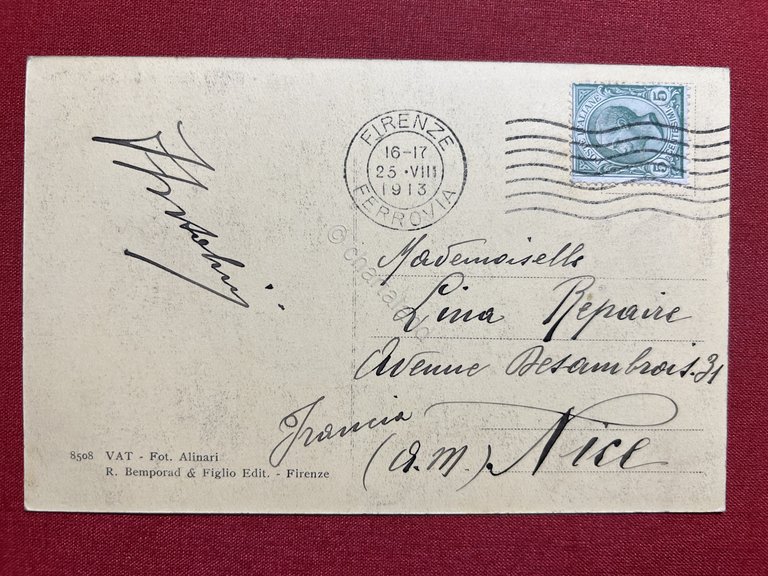 FIRENZE
16-17
25 • VIII
1913
FERROVIA
5
5
Mademoiselle
Lina Repaire
Avenue Desambrois. 31
Francia
(A.M.) Nice
8508 VAT - Fot. Alinari
R. Bemporad & Figlio Edit. - Firenze